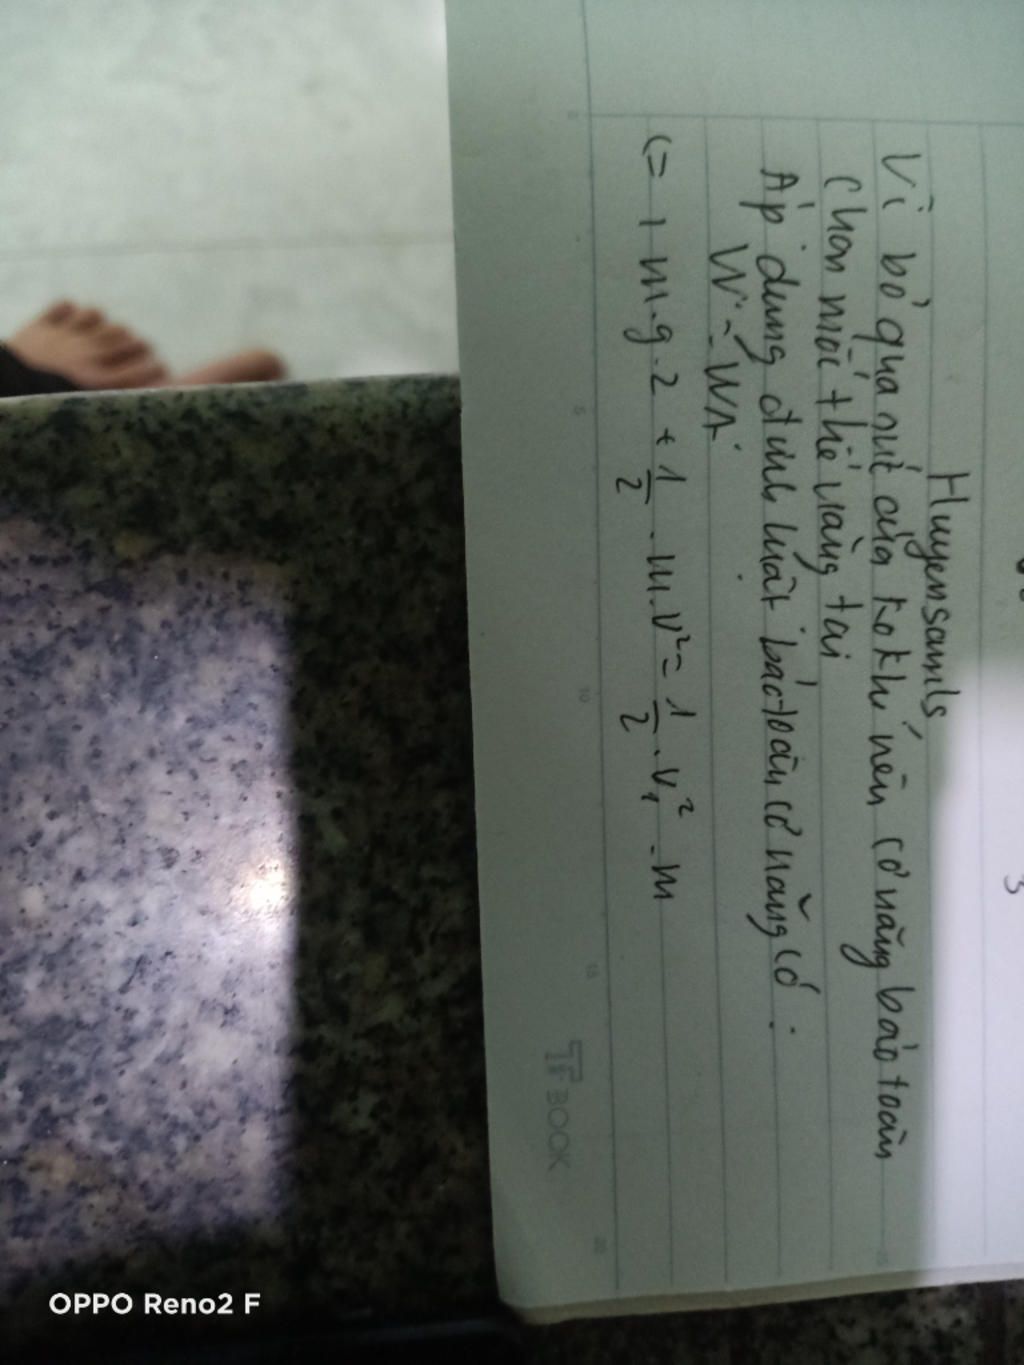 Huyensamls
Vì bỏ qua sức cản ko khí nên cơ năng bảo toàn
Chọn mốc thế năng tại
Áp dụng định luật bảo toàn cơ năng có :
W = WA
(= 1 m.g.2 + 1/2 . m.v² = 1/2 . v₁² . m
TF BOOK
5
10
15
20
3
OPPO Reno2 F